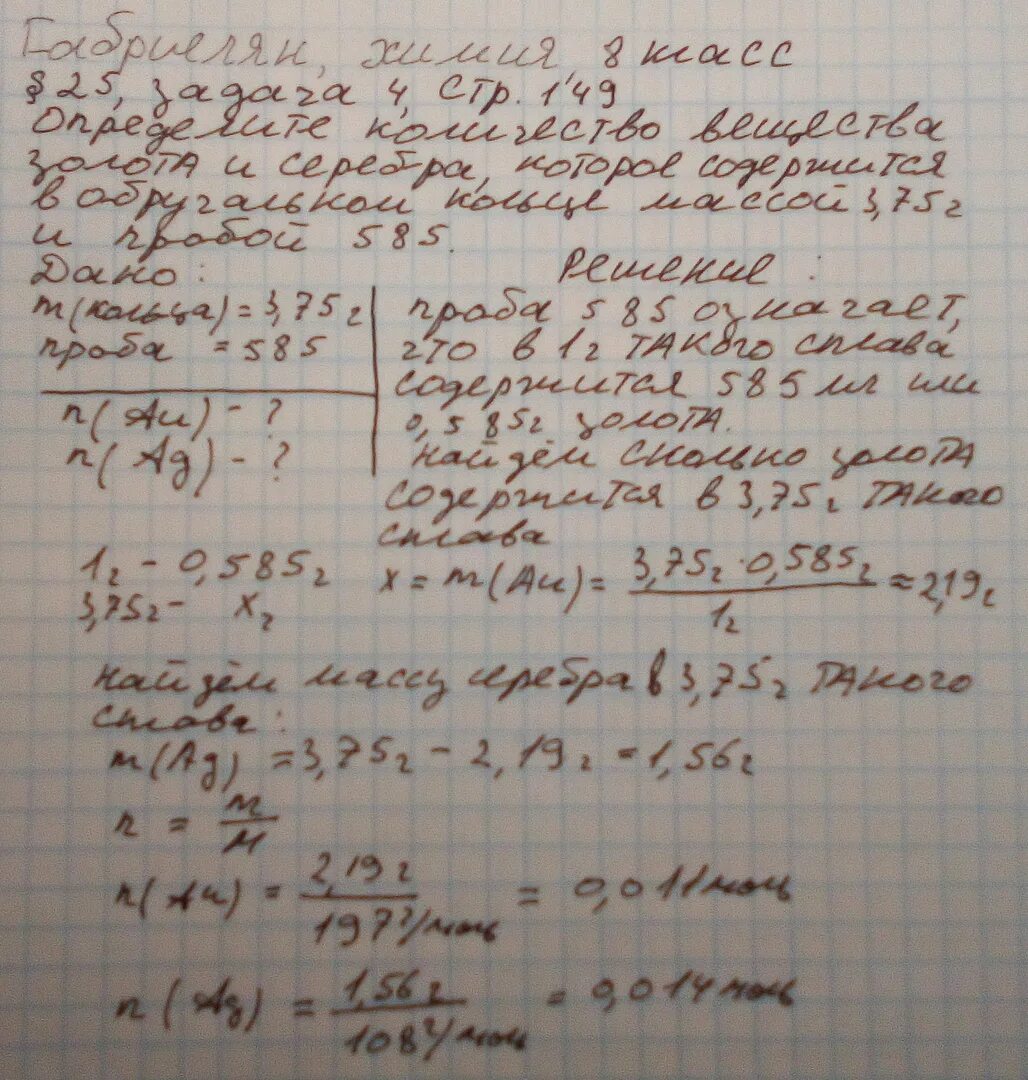 Габриелян, химия 8 класс
§ 25, задача 4, стр. 149
Определите количество вещества
золота и серебра, которое содержится
в обручальном кольце массой 3,75г
и пробой 585.
Дано:
m(кольца) = 3,75г
проба = 585
n(Au) - ?
n(Ag) - ?
Решение:
проба 585 означает,
что в 1г такого сплава
содержится 585 мг или
0,585г золота.
Найдём сколько золота
содержится в 3,75г такого
сплава
1г - 0,585г
3,75г - xг
x = m(Au) = 3,75г · 0,585г / 1г ≈ 2,19г
Найдём массу серебра в 3,75г такого
сплава:
m(Ag) = 3,75г - 2,19г = 1,56г
n = m / M
n(Au) = 2,19г / 197г/моль = 0,011моль
n(Ag) = 1,56г / 108г/моль = 0,014моль